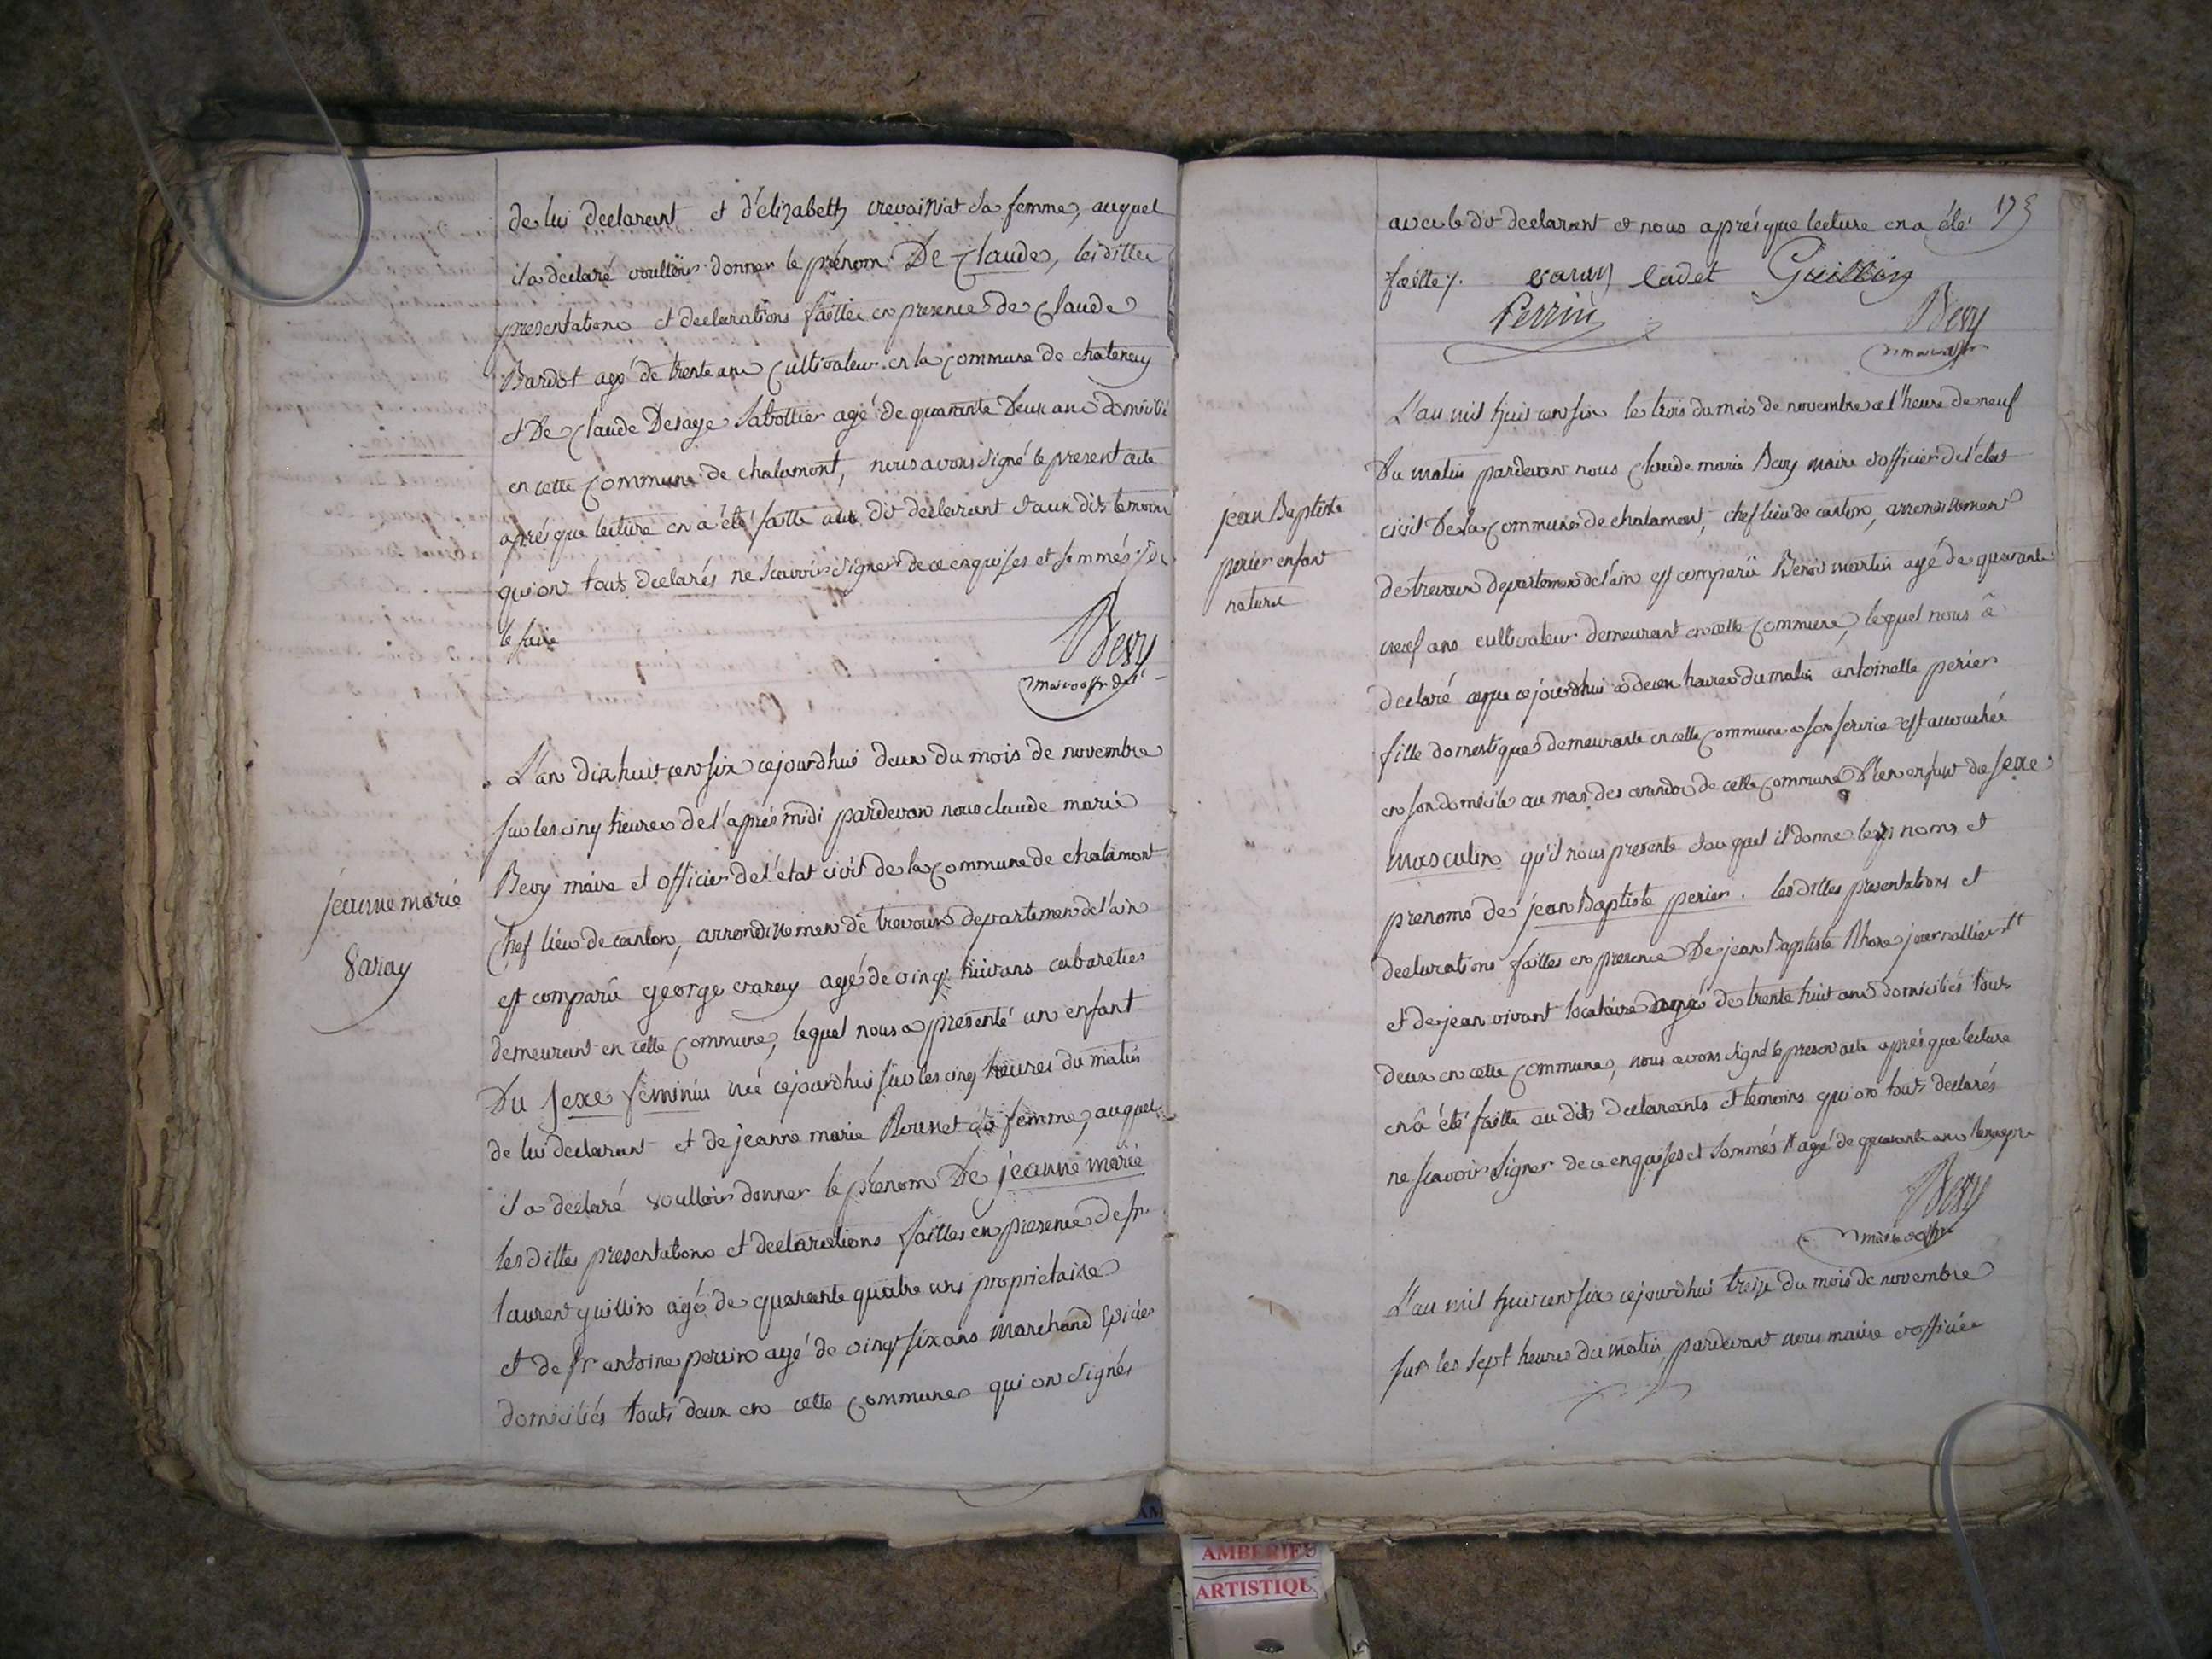 de lui declarant et d'élizabeth crevairiat sa femme, auquel
il a declaré voulloir donner le prénom De Claude, lesdittes
presentations et declarations faittes en presence de Claude
Bardot agé de trente ans Cultivateur en la Commune de chatenay
et De Claude Desaye Sabottier agé de quarante Deux ans domicilié
en cette Commune de chalamont, nous avons signé le present acte
aprés que lecture en a été faitte au dit declarant et aux dits temoins
qui ont touts declarés ne scavoir signer de ce enquises et sommés de
le faire
Bevy
maire offr de l'
jeanne marie
Varay
L'an dix huit cent six cejourdhui deux du mois de novembre
sur les cinq heures de l'aprés midi pardevant nous claude marie
Bevy maire et officier de l'état civil de la Commune de chalamont
Chef lieu de canton, arrondissement de trevoux departement de l'ain
est comparû george varay agé de vingt huit ans cabaretier
demeurant en cette Commune, lequel nous a presenté un enfant
Du Sexe feminin né cejourdhui sur les cinq heures du matin
de lui declarant et de jeanne marie Rousset sa femme, auquel
il a declaré voulloir donner le prenom De jeanne marie
lesdittes presentations et declarations faittes en presence de fr.
laurent guillin agé de quarante quatre ans proprietaire
et de fr antoine perrin agé de vingt six ans marchand Epicier
domiciliés touts deux en cette Commune qui ont signés
175
avec le dit declarant et nous aprés que lecture en a été
faitte /. varay Cadet Guillin
Perrin Bevy
maire offr
jean Baptiste
perier enfant
naturel
L'an mil huit cent six le trois du mois de novembre a l'heure de neuf
Du matin pardevant nous Claude marie Bevy maire et officier de l'état
civil De la Commune de chalamont, chef lieu de canton, arrondissement
de trevoux departement de l'ain est comparû Benoit martin agé de quarante
neuf ans cultivateur demeurant en cette Commune, lequel nous â
declaré que cejourdhui a deux heures du matin antoinette perier
fille domestique demeurante en cette Commune a son service est accouchée
en son domicile au mas des de cette Commune D'un enfant du sexe
masculin qu'il nous presente et auquel il donne les noms et
prenoms de jean Baptiste perier. lesdittes presentations et
declarations faittes en presence De jean Baptiste Rhone journallier ++
et de jean vivant locataire agé de trente huit ans domiciliés touts
deux en cette Commune, nous avons signé le present acte aprés que lecture
en â été faitte au dits declarants et temoins qui ont touts declarés
ne scavoir signer de ce enquises et sommés ++ agé de quarante ans
Bevy
maire offr
L'an mil huit cent six cejourdhui treize du mois de novembre
sur les sept heures du matin, pardevant nous maire et officier
AMBERIEU
ARTISTIQU